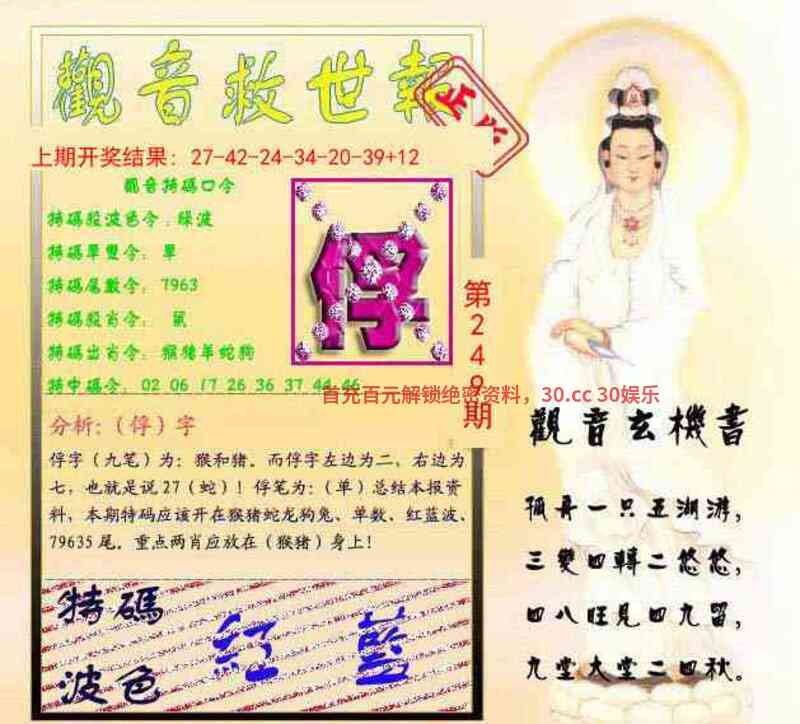 觀音救世報
正版
上期开奖结果：27-42-24-34-20-39+12
觀音特碼口令
特碼殺波色令：绿波
特碼單雙令：單
特碼尾數令：7963
特碼殺肖令：鼠
特碼出肖令：猴豬羊蛇狗
特中碼令：02 06 17 26 36 37 44 46
俘
第249期
首充百元解锁绝密资料，30.cc 30娱乐
分析：（俘）字
俘字（九笔）为：猴和猪。而俘字左边为二，右边为
七，也就是说27（蛇）！俘笔为：（单）总结本报资
料，本期特码应该开在猴猪蛇龙狗兔、单数、红蓝波、
79635尾。重点两肖应放在（猴猪）身上！
特碼
波色
紅 藍
觀音玄機書
孤舟一只五湖游，
三變四轉二悠悠，
四八旺見四九留，
九堂大堂二四秋。